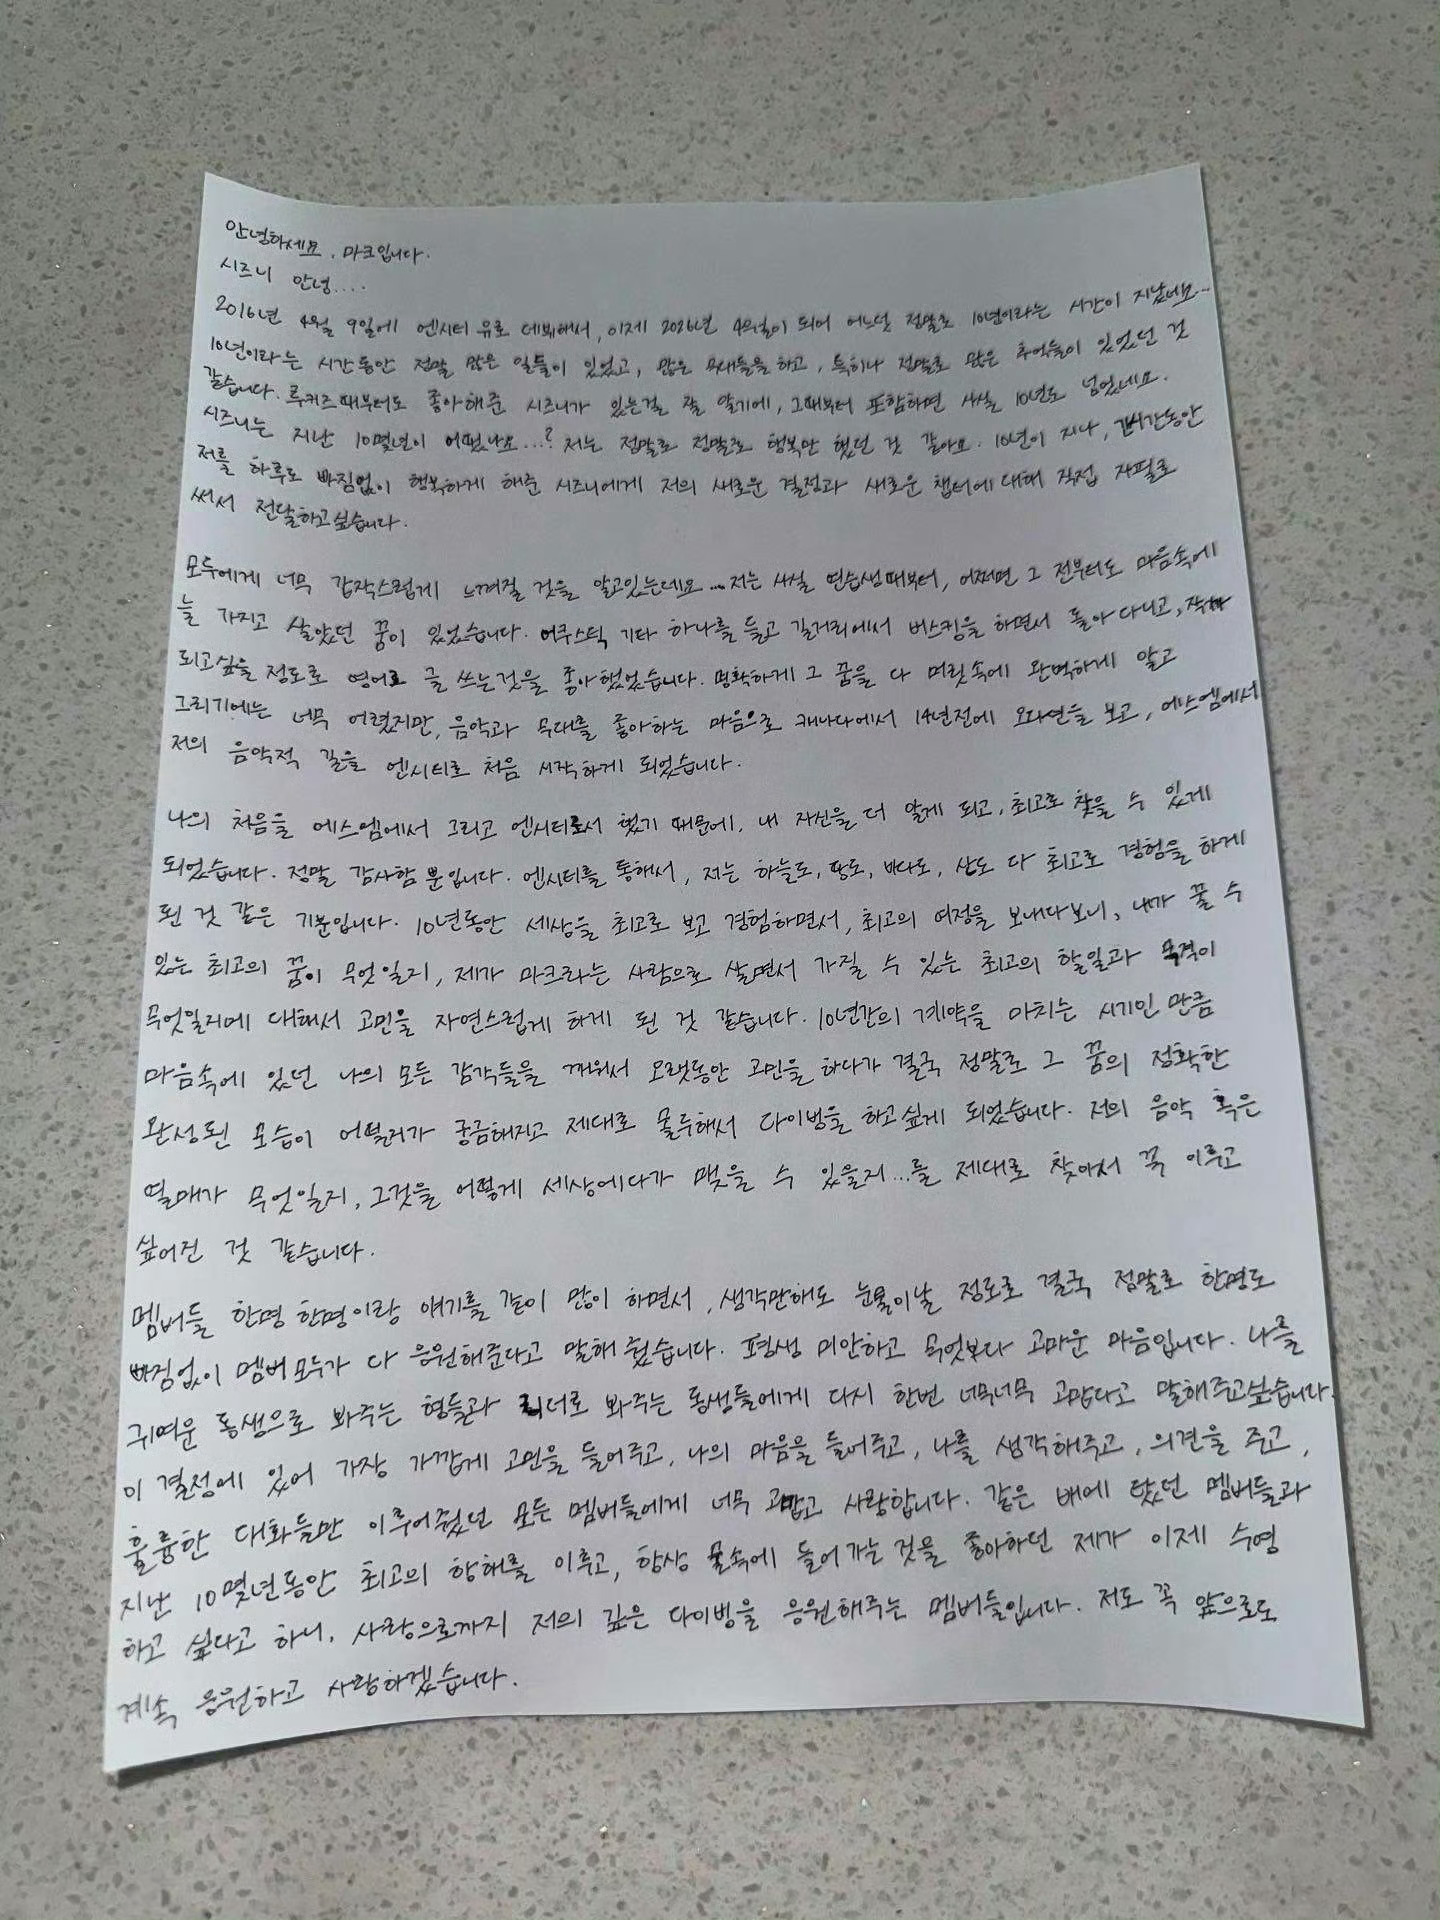 안녕하세요. 마크입니다.
시즈니 안녕....
2016년 4월 9일에 엔시티 유로 데뷔해서, 이제 2026년 4월이 되어 어느덧 정말로 10년이라는 시간이 지났네요...
10년이라는 시간동안 정말 많은 일들이 있었고, 많은 무대들을 하고, 특히나 정말로 많은 추억들이 있었던 것
같습니다. 루키즈때부터도 좋아해준 시즈니가 있는걸 잘 알기에, 그때부터 포함하면 사실 10년도 넘었네요.
시즈니는 지난 10몇년이 어땠나요...? 저는 정말로 정말로 행복만 했던 것 같아요. 10년이 지나, 긴시간동안
저를 하루도 빠짐없이 행복하게 해준 시즈니에게 저의 새로운 결정과 새로운 챕터에 대해 직접 자필로
써서 전달하고싶습니다.
모두에게 너무 갑작스럽게 느껴질 것을 알고있는데요... 저는 사실 연습생때부터, 어쩌면 그 전부터도 마음속에
늘 가지고 살았던 꿈이 있었습니다. 어쿠스틱 기타 하나를 들고 길거리에서 버스킹을 하면서 돌아다니고, 작가
되고싶을 정도로 영어로 글 쓰는것을 좋아했었습니다. 명확하게 그 꿈을 다 머릿속에 완벽하게 알고
그리기에는 너무 어렸지만, 음악과 무대를 좋아하는 마음으로 캐나다에서 14년전에 오디션을 보고, 에스엠에서
저의 음악적 길을 엔시티로 처음 시작하게 되었습니다.
나의 처음을 에스엠에서 그리고 엔시티로서 했기 때문에, 내 자신을 더 알게 되고, 최고로 찾을 수 있게
되었습니다. 정말 감사함 뿐입니다. 엔시티를 통해서, 저는 하늘도, 땅도, 바다도, 산도 다 최고로 경험을 하게
된 것 같은 기분입니다. 10년동안 세상을 최고로 보고 경험하면서, 최고의 여정을 보내다보니, 내가 꿀 수
있는 최고의 꿈이 무엇일지, 제가 마크라는 사람으로 살면서 가질 수 있는 최고의 할일과 목적이
무엇일지에 대해서 고민을 자연스럽게 하게 된 것 같습니다. 10년간의 계약을 마치는 시기인 만큼
마음속에 있던 나의 모든 감각들을 깨워서 오랫동안 고민을 하다가 결국 정말로 그 꿈의 정확한
완성된 모습이 어떨지가 궁금해지고 제대로 몰두해서 다이빙을 하고싶게 되었습니다. 저의 음악 혹은
열매가 무엇일지, 그것을 어떻게 세상에다가 맺을 수 있을지...를 제대로 찾아서 꼭 이루고
싶어진 것 같습니다.
멤버들 한명 한명이랑 얘기를 같이 많이 하면서, 생각만해도 눈물이날 정도로 결국 정말로 한명도
빠짐없이 멤버 모두가 다 응원해준다고 말해 줬습니다. 평생 미안하고 무엇보다 고마운 마음입니다. 나를
귀여운 동생으로 봐주는 형들과 리더로 봐주는 동생들에게 다시 한번 너무너무 고맙다고 말해주고싶습니다.
이 결정에 있어 가장 가깝게 고민을 들어주고, 나의 마음을 들어주고, 나를 생각해주고, 의견을 주고,
훌륭한 대화들만 이루어줬던 모든 멤버들에게 너무 고맙고 사랑합니다. 같은 배에 탔던 멤버들과
지난 10몇년동안 최고의 항해를 이루고, 항상 물속에 들어가는것을 좋아하던 제가 이제 수영
하고 싶다고 하니, 사랑으로까지 저의 깊은 다이빙을 응원해주는 멤버들입니다. 저도 꼭 앞으로도
계속 응원하고 사랑하겠습니다.